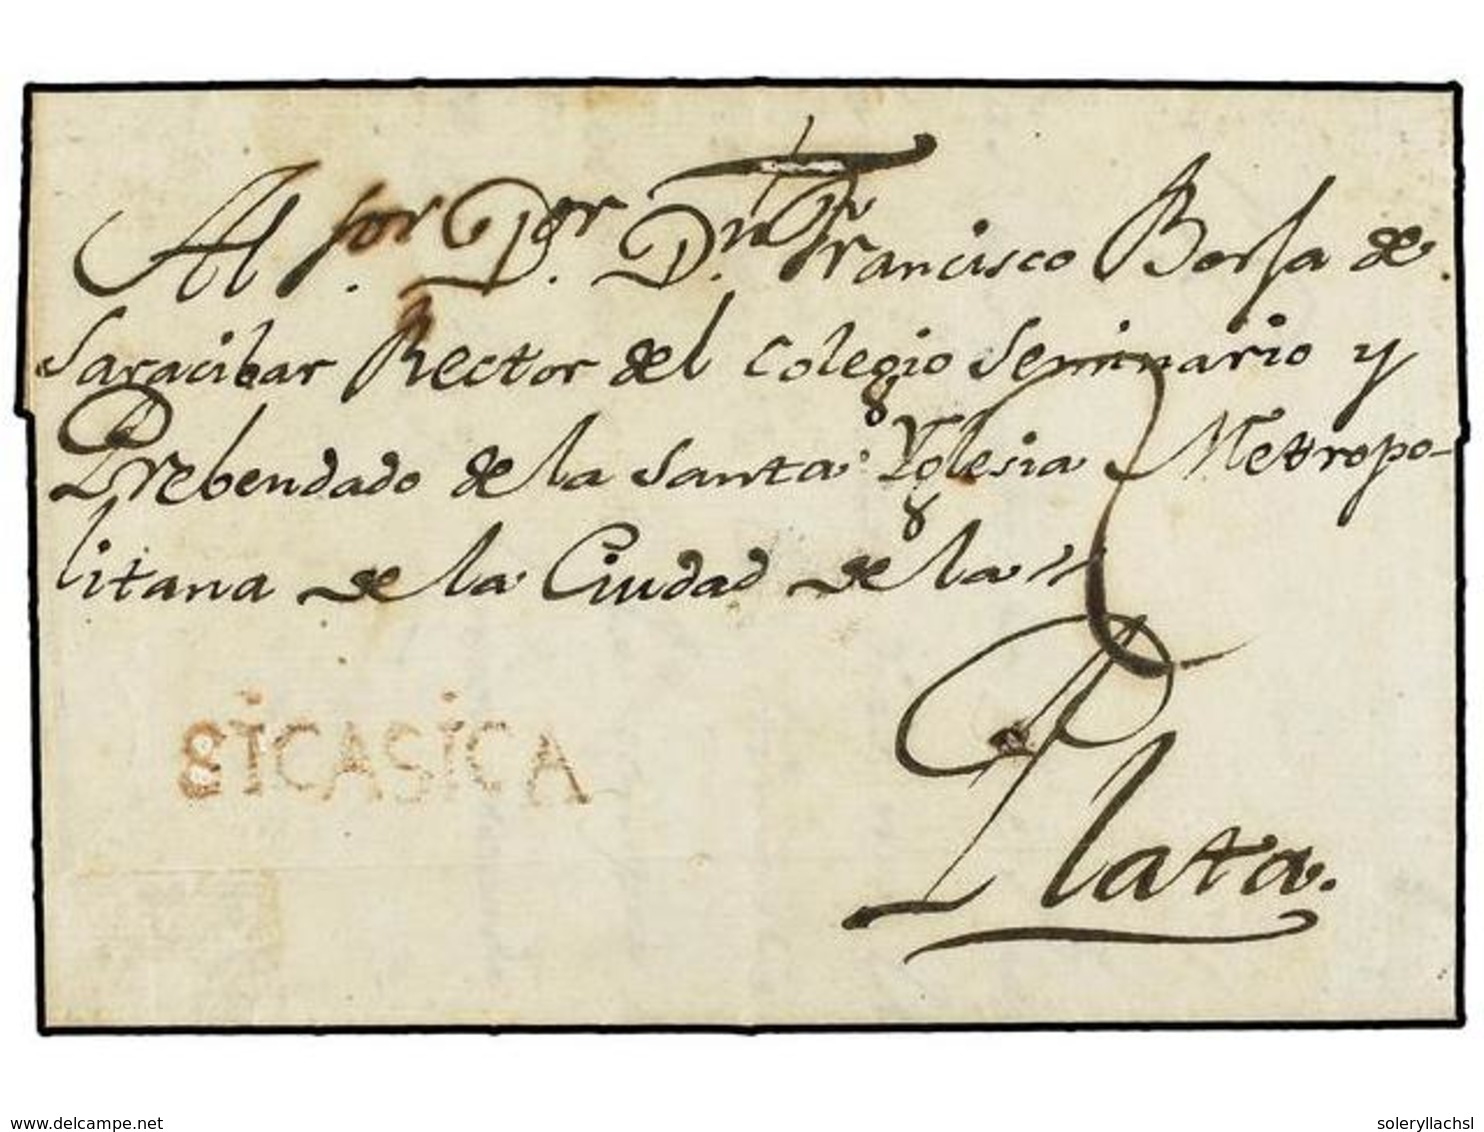 Al Sor. Dor. Dn. Francisco Borja de
Saracibar Rector del Colegio Seminario y
Prebendado de la Santa Yglesia Metropo-
litana de la Ciudad de la
Plata.
SICASICA
www.delcampe.net
soleryllachsl